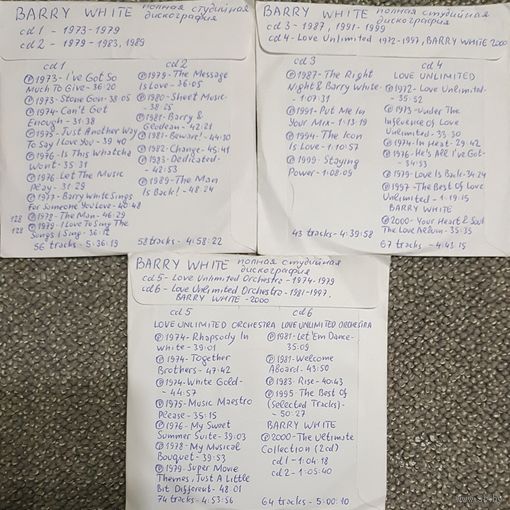 BARRY WHITE полная студийная
дискография
cd 1 - 1973-1979
cd 2 - 1979-1983, 1989
cd1
℗1973-I've Got So
Much To Give-36:20
℗1973-Stone Gon-38:05
℗1974-Can't Get
Enough-31:38
℗1975-Just Another Way
To Say I Love You-39:40
℗1976-Is This Whatcha
Wont-35:31
℗1976 Let The Music
Play-31:29
℗1977-Barry White Sings
For Someone You Love-40:48
128 ℗1978-The Man-46:29
128 ℗1979-I Love To Sing The
Songs I Sing-36:12
56 tracks-5:36:19
cd2
℗1979-The Message
Is Love-36:05
℗1980-Sheet Music-
38:25
℗1981-Barry &
Glodean-42:21
℗1981-Beware!-44:30
℗1982-Change-45:41
℗1983-Dedicated-
42:53
℗1989-The Man
Is Back!-48:24
53 tracks-4:58:22
BARRY WHITE полная студийная
дискография
cd 3-1987, 1991-1999
cd 4-Love Unlimited 1972-1997, BARRY WHITE 2000
cd 3
℗1987-The Right
Night & Barry White-
1:07:31
℗1991-Put Me In
Your Mix-1:13:19
℗1994-The Icon
Is Love-1:10:57
℗1999-Staying
Power-1:08:09
43 tracks-4:39:58
cd 4
LOVE UNLIMITED
℗1972-Love Unlimited-
35:52
℗1973-Under The
Influence Of Love
Unlimited-35:30
℗1974-In Heat-29:42
℗1976-He's All I've Got-
34:33
℗1979-Love Is Back-34:24
℗1997-The Best Of Love
Unlimited-1:19:15
BARRY WHITE
℗2000-Your Heart & Soul
The Love Album-35:35
67 tracks-4:43:15
BARRY WHITE полная студийная
дискография
cd 5-Love Unlimited Orchestra-1974-1979
cd 6-Love Unlimited Orchestra-1981-1997,
BARRY WHITE-2000
cd 5
LOVE UNLIMITED ORCHESTRA
℗1974-Rhapsody In
White-39:01
℗1974-Together
Brothers-47:42
℗1974-White Gold-
44:57
℗1975-Music Maestro
Please-35:15
℗1976-My Sweet
Summer Suite-39:03
℗1978-My Musical
Bouquet-39:53
℗1979-Super Movie
Themes, Just A Little
Bit Different-48:01
74 tracks-4:53:56
cd 6
LOVE UNLIMITED ORCHESTRA
℗1981-Let'Em Dance-
35:09
℗1981-Welcome
Aboard-43:50
℗1983-Rise-40:43
℗1995-The Best Of
(Selected Tracks)-
-50:27
BARRY WHITE
℗2000-The Ultimate
Collection (2cd)
cd1-1:04:18
cd2-1:05:40
64 tracks-5:00:10